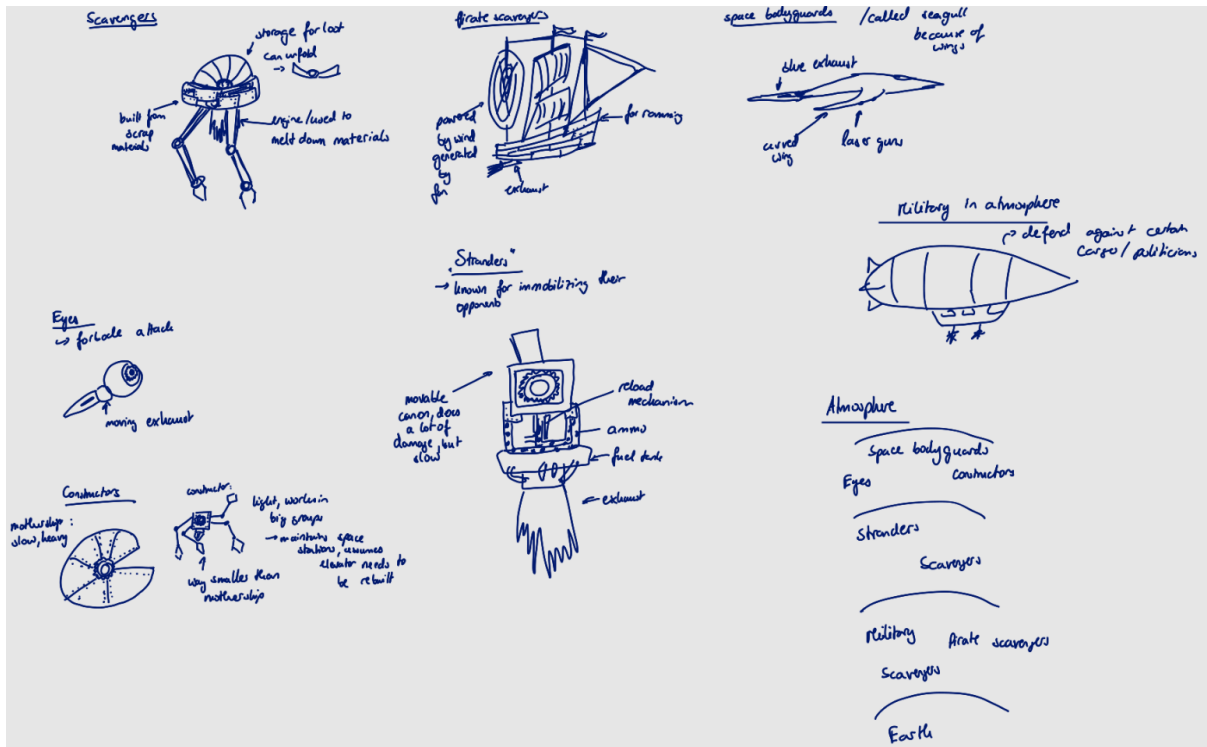 Scavengers
storage for loot
can unfold
built from
scrap
materials
engine/used to
melt down materials
Pirate scavengers
powered
by wind
generated
by
fan
for ramming
exhaust
space bodyguards /called seagull
because of
wings
blue exhaust
curved
wing
laser guns
Military in atmosphere
defend against certain
cargo/politicians
Eyes
for bode attack
moving exhaust
"Stranders"
known for immobilizing their
opponents
movable
canon, does
a lot of
damage, but
slow
reload
mechanism
ammo
fuel tank
exhaust
Constructors
mothership:
slow, heavy
constructor:
light, works in
big groups
maintains space
stations, assumes
elevator needs to
be rebuilt
way smaller than
mothership
Atmosphere
space bodyguards
Eyes
Constructors
Stranders
Scavengers
Military
Pirate scavengers
Scavengers
Earth